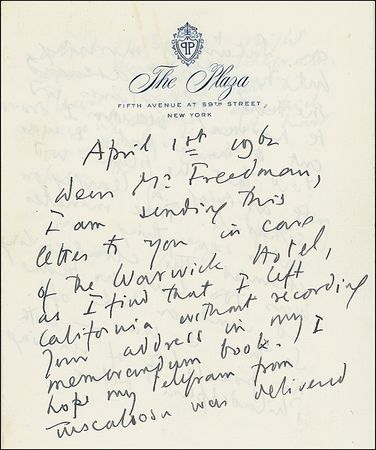 PP
The Plaza
FIFTH AVENUE AT 59TH STREET,
NEW YORK
April 1st 1962
Dear Mr Freedman,
I am sending this
letter to you in care
of the Warwick Hotel,
as I find that I left
California without recording
your address in my
memorandum book. I
hope my telegram from
Tuscaloosa was delivered